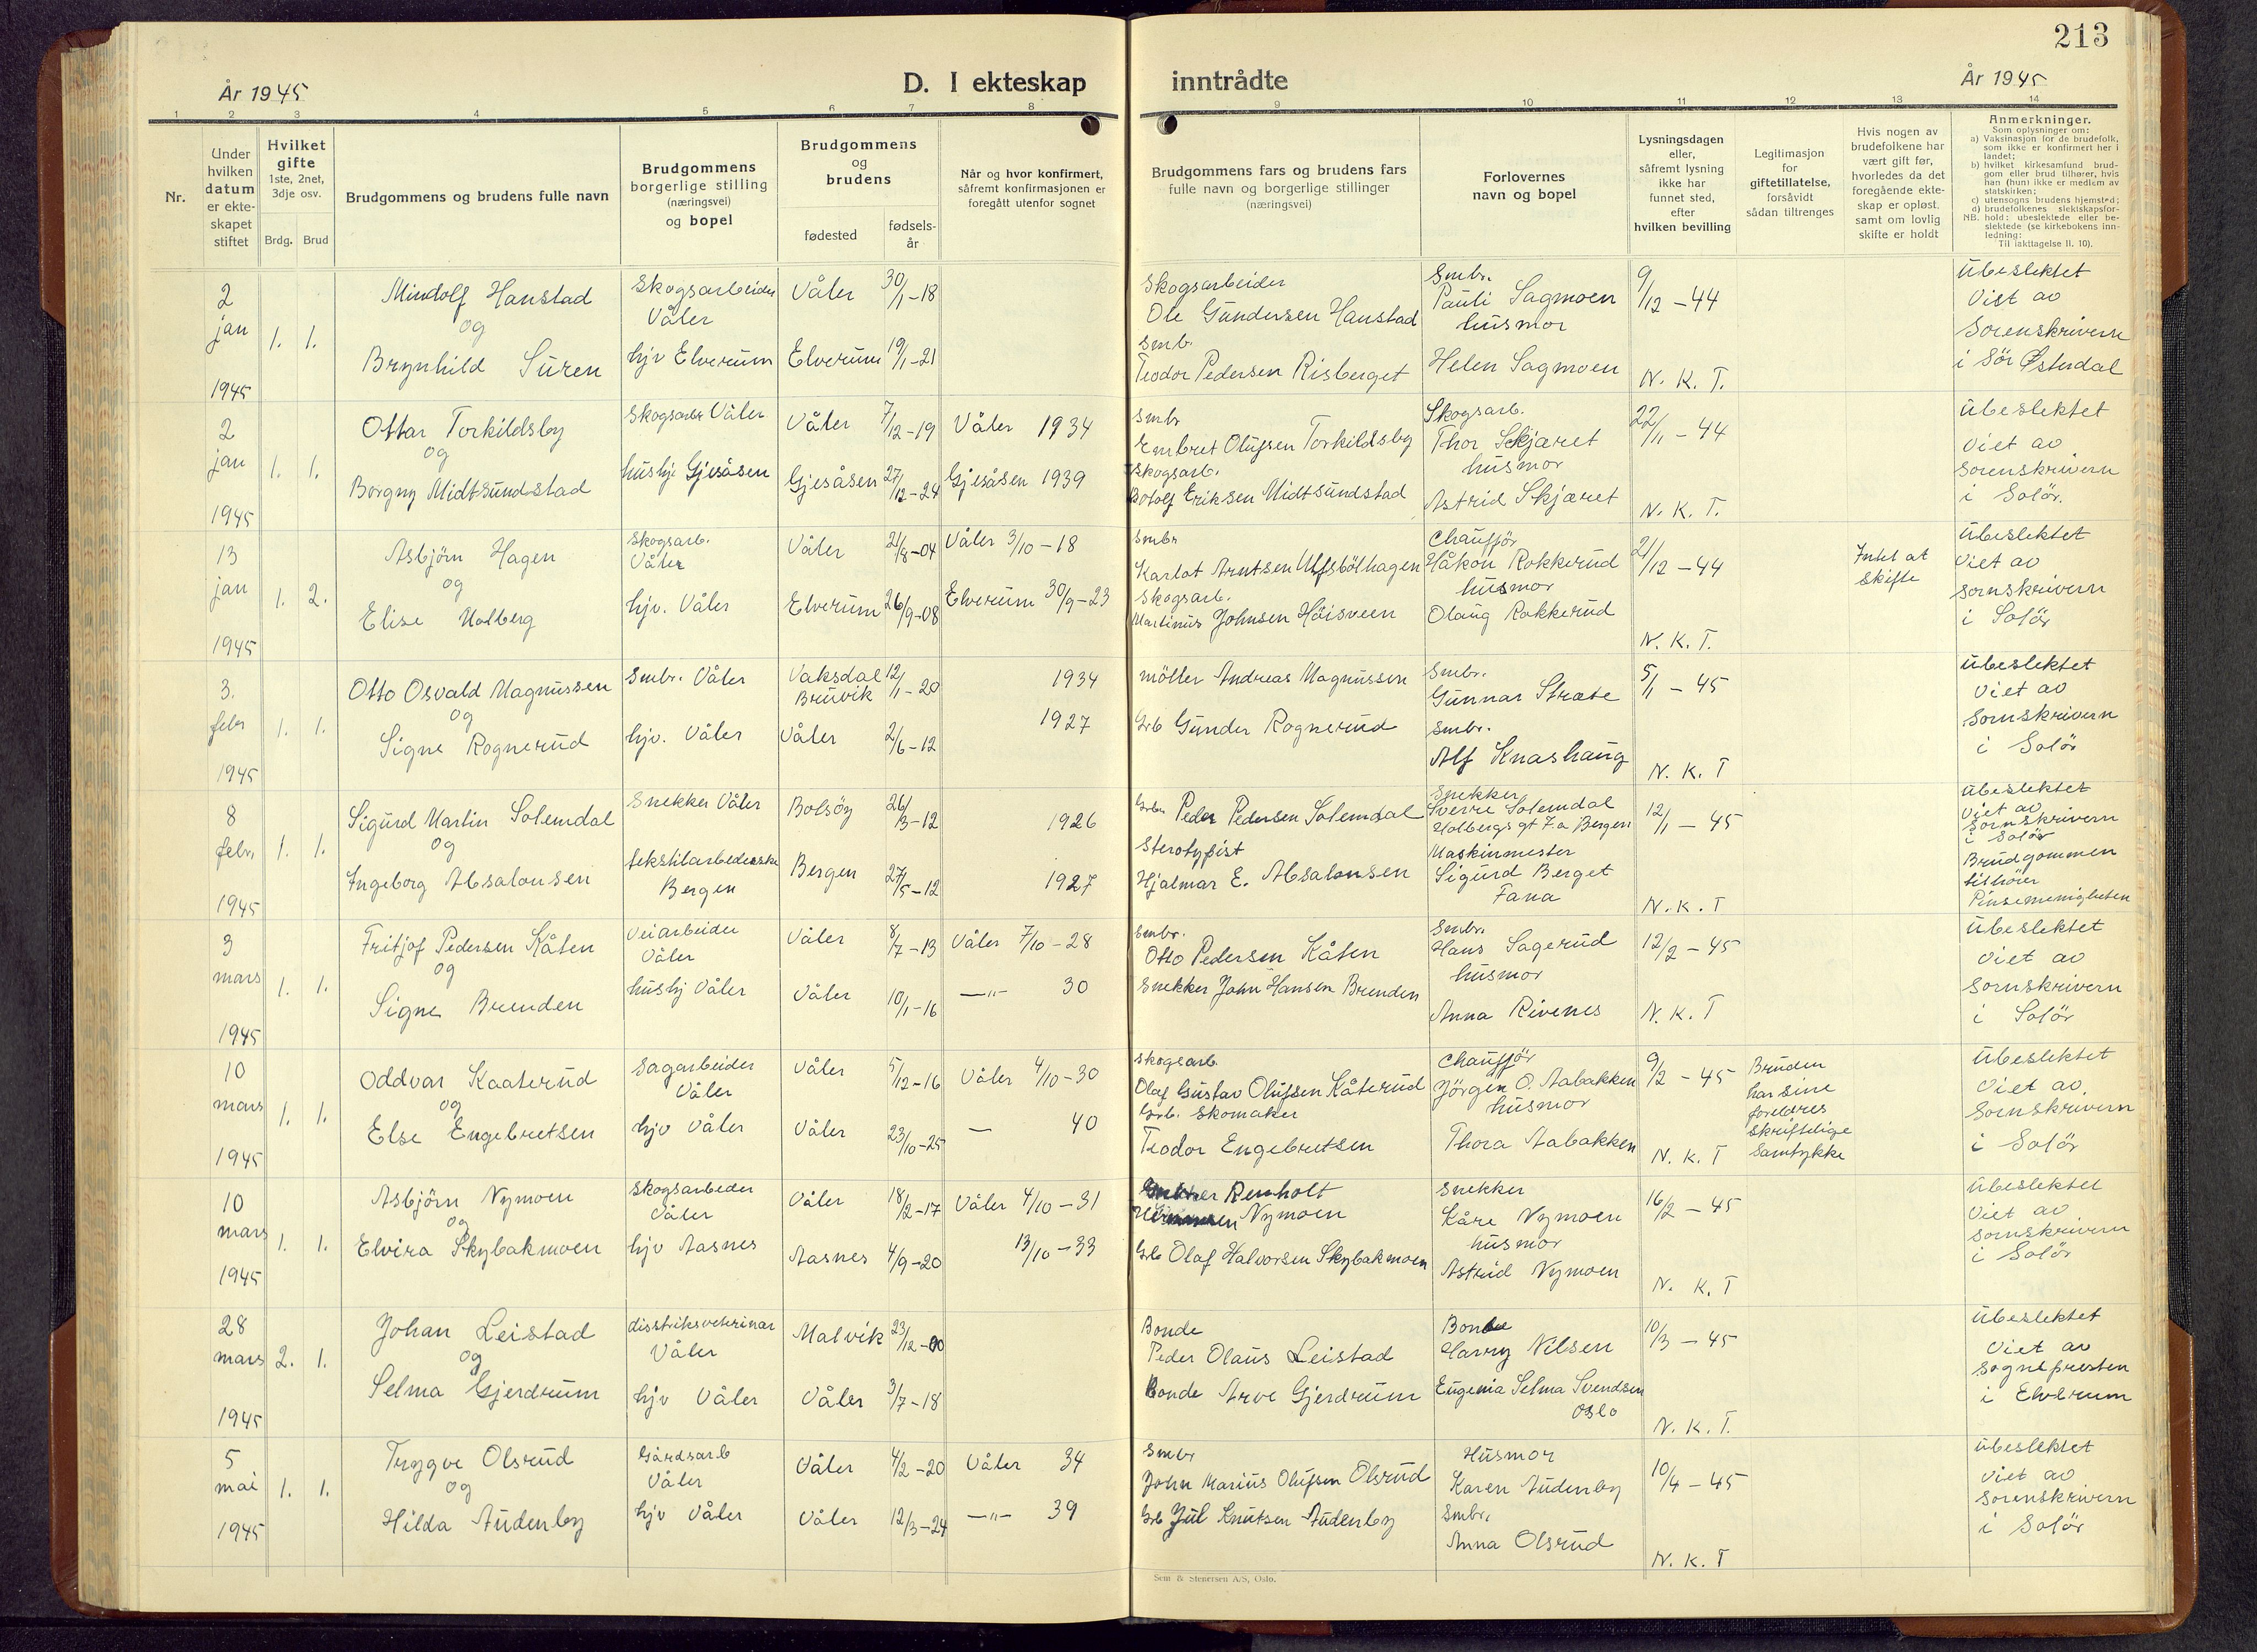 213
År 1945
D. I ekteskap inntrådte
År 1945
1 2 3 4 5 6 7 8 9 10 11 12 13 14
Nr.
Under hvilken datum er ekteskapet stiftet
Hvilket gifte 1ste, 2net, 3dje osv.
Brdg. Brud
Brudgommens og brudens fulle navn
Brudgommens borgerlige stilling (næringsvei) og bopel
Brudgommens og brudens
fødested
fødsels-år
Når og hvor konfirmert, såfremt konfirmasjonen er foregått utenfor sognet
Brudgommens fars og brudens fars fulle navn og borgerlige stillinger (næringsvei)
Forlovernes navn og bopel
Lysningsdagen eller, såfremt lysning ikke har funnet sted, efter hvilken bevilling
Legitimasjon for giftetillatelse, forsåvidt sådan tiltrenges
Hvis nogen av brudefolkene har vært gift før, hvorledes da det foregående ekteskap er opløst, samt om lovlig skifte er holdt
Anmerkninger.
Som oplysninger om:
a) Vaksinasjon for de brudefolk, som ikke er konfirmert her i landet;
b) hvilket kirkesamfund brudgom eller brud tilhører, hvis han (hun) ikke er medlem av statskirken;
c) utensogns brudens hjemsted;
d) brudefolkenes slektskapsforhold: ubeslektede eller beslektede (se kirkebokens innledning:
NB. Til iakttagelse II. 10).
2 jan 1945
1. 1.
Mindolf Hanstad
og
Brynhild Suren
Skogsarbeider Våler
hjv Elverum
Våler 30/1-18
Elverum 19/1-21
Skogsarbeider
Ole Gundersen Hanstad
Smb.
Teodor Pedersen Risberget
Smbr.
Pauli Sagmoen
husmor
Helen Sagmoen
9/12-44
N. K. T.
Ubeslektet
Viet av
Sorenskriveren
i Sör Østerdal
2 jan 1945
1. 1.
Ottar Torkildsby
og
Borgny Midtsundstad
Skogsarb Våler
hushj Gjesåsen
Våler 7/12-19
Gjesåsen 27/12-24
Våler 1934
Gjesåsen 1939
Smbr
Embret Olufsen Torkildsby
Skogsarb.
Botolf Eriksen Midtsundstad
Skogsarb.
Thor Skjæret
husmor
Astrid Skjæret
22/11-44
N. K. T.
Ubeslektet
Viet av
sorenskrivern
i Solör.
13 jan 1945
1. 2.
Asbjörn Hagen
og
Elise Holberg
Skogsarb.
Våler
hjv. Våler
Våler 21/8-04
Elverum 26/9-08
Våler 3/10-18
Elverum 30/9-23
Smbr
Karlot Arntsen Ulfsbölhagen
Skogsarb.
Martinus Johnsen Höisveen
Chaufför
Håkon Rokkerud
husmor
Olaug Rokkerud
21/12-44
N. K. T.
Intet at skifte
Ubeslektet
Viet av
sornskrivern
i Solör
3. febr 1945
1. 1.
Otto Osvald Magnussen
og
Signe Rognerud
Smbr. Våler
hjv. Våler
Vaksdal Bruvik 12/1-20
Våler 2/6-12
1934
1927
möller Andreas Magnussen
Grb Gunder Rognerud
Smbr.
Gunnar Stræte
Smbr.
Alf Knashaug
5/1-45
N. K. T
Ubeslektet
Viet av
Sornskrivern
i Solör
8 febr. 1945
1. 1.
Sigurd Martin Solemdal
og
Ingeborg Absalonsen
Snekker Våler
tekstilarbederske
Bergen
Bolsöy 26/3-12
Bergen 27/5-12
1926
1927
Grbr Peder Pedersen Solemdal
Sterotypist
Hjalmar E. Absalonsen
Snekker
Sverre Solemdal
Holbergs gt 7.a Bergen
Maskinmester
Sigurd Berget
Fana
12/1-45
N. K. T
Ubeslektet
Viet av
Sornskrivern
i Solör
Brudgommen
tilhörer
Pinsemenigheten
3 mars 1945
1. 1.
Fritjof Pedersen Kåten
og
Signe Brenden
Veiarbeider
Våler
hushj Våler
Våler 8/7-13
Våler 10/1-16
Våler 7/10-28
—"— 30
Smbr.
Otto Pedersen Kåten
Snekker John Hansen Brenden
Smbr.
Hans Sagerud
husmor
Anna Rivenes
12/2-45
N. K. T
Ubeslektet
Viet av
Sornskrivern
i Solör
10 mars 1945
1. 1.
Oddvar Kaaterud
og
Else Engebretsen
Sagarbeider
Våler
hjv Våler
Våler 5/12-16
Våler 23/10-25
Våler 4/10-30
— 40
Skogsarb.
Olaf Gustav Olufsen Kåterud
Grb. Skomaker
Teodor Engebretsen
Chaufför
Jörgen O. Aabakken
husmor
Thora Aabakken
9/2-45
N. K. T
Bruden
har sine
foreldres
skriftelige
Samtykke
Ubeslektet
Viet av
Sornskrivern
i Solör
10 mars 1945
1. 1.
Asbjörn Nymoen
og
Elvira Skybakmoen
Skogsarbeder
Våler
hjv Aasnes
Våler 18/2-17
Aasnes 4/9-20
Våler 4/10-31
13/10-33
Renholt
Nymoen
Grb Olaf Halvorsen Skybakmoen
Snekker
Kåre Nymoen
husmor
Astrid Nymoen
16/2-45
N. K. T
Ubeslektet
Viet av
Sornskrivern
i Solör
28 mars 1945
2. 1.
Johan Leistad
og
Selma Gjerdrum
disstriksveterinær
Våler
hjv Våler
Malvik 23/12-00
Våler 3/7-18
Bonde
Peder Olaus Leistad
Bonde Arve Gjerdrum
Bonde
Harry Nilsen
Eugenia Selma Svendsen
Oslo
10/3-45
N. K. T.
Ubeslektet
Viet av
Sognepresten
i Elverum
5 mai 1945
1. 1.
Trygve Olsrud
og
Hilda Audenby
Gårdsarb
Våler
hjv Våler
Våler 4/2-20
Våler 12/3-24
Våler 34
—"— 39
Smbr
John Marius Olufsen Olsrud
Grb Jul Knutsen Audenby
Husmor
Karen Audenby
Smbr.
Anna Olsrud
10/4-45
N. K. T
Ubeslektet
Viet av
Sorenskrivern
i Solör
Sem & Stenersen A/S, Oslo.